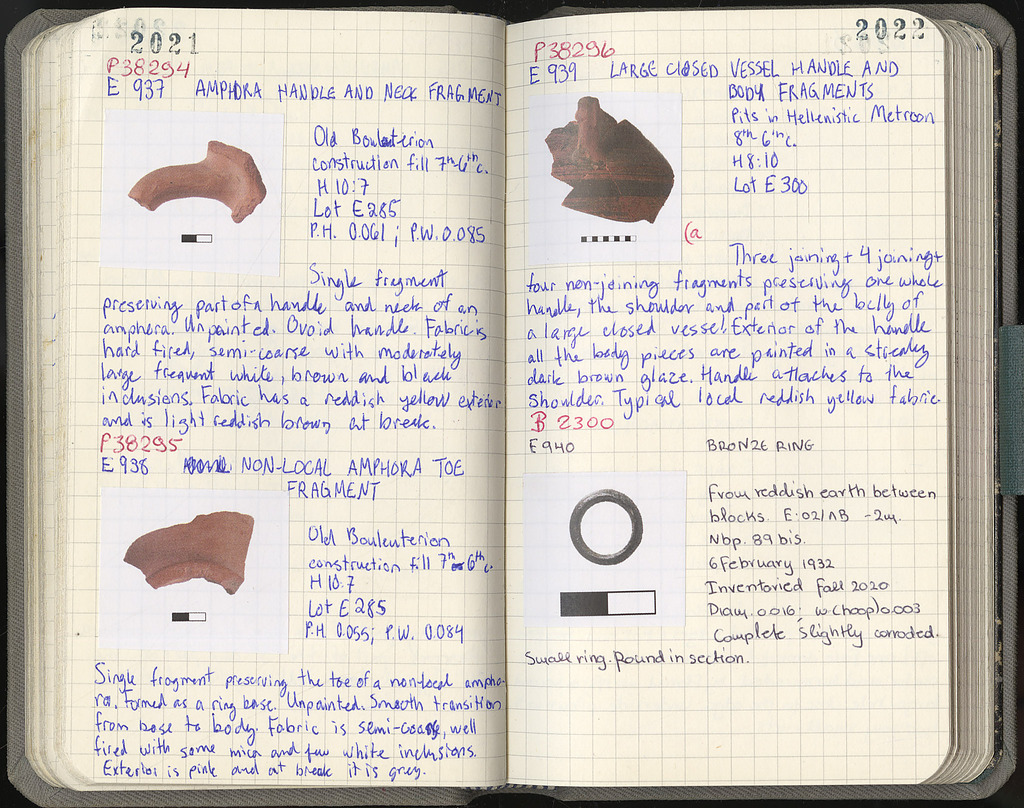 2021
P38294
E 937 AMPHORA HANDLE AND NECK FRAGMENT
Old Bouleuterion
construction fill 7th-6th c.
H 10:7
Lot E 285
P.H. 0.061 ; P.W. 0.085
Single fragment
preserving part of a handle and neck of an
amphora. Unpainted. Ovoid handle. Fabric is
hard fired, semi-coarse with moderately
large frequent white, brown and black
inclusions. Fabric has a reddish yellow exterior
and is light reddish brown at break.
P38295
E 938 NON-LOCAL AMPHORA TOE
FRAGMENT
Old Bouleuterion
construction fill 7th 6th c.
H 10:7
Lot E 285
P.H. 0.055; P.W. 0.084
Single fragment preserving the toe of a non-local ampho-
ra. Formed as a ring base. Unpainted. Smooth transition
from base to body. Fabric is semi-coarse, well
fired with some mica and few white inclusions.
Exterior is pink and at break it is grey.
2022
P38296
E 939 LARGE CLOSED VESSEL HANDLE AND
BODY FRAGMENTS
Pits in Hellenistic Metroon
8th-6th c.
H 8:10
Lot E 300
(a
Three joining + 4 joining +
four non-joining fragments preserving one whole
handle, the shoulder and part of the belly of
a large closed vessel. Exterior of the handle
all the body pieces are painted in a streaky
dark brown glaze. Handle attaches to the
shoulder. Typical local reddish yellow fabric.
B 2300
E 940 BRONZE RING
From reddish earth between
blocks. E: 02/ΛB -2m.
Nbp. 89 bis.
6 February 1932
Inventoried fall 2020
Diam. 0.016; w. (hoop) 0.003
Complete, slightly corroded.
Small ring. Round in section.